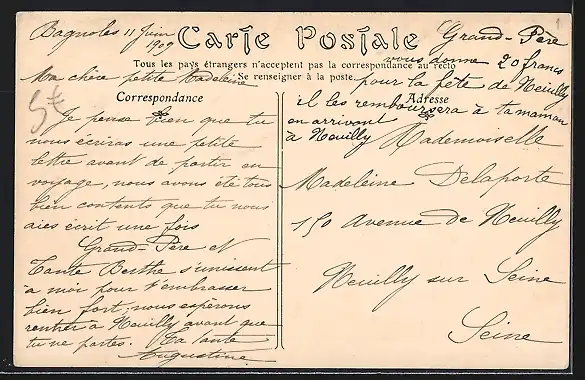 Carte Postale
Tous les pays étrangers n'acceptent pas la correspondance au recto
Se renseigner à la poste
Correspondance
Adresse
Bagnoles 11 Juin
1909
Ma chère petite Madeleine
Je pense bien que tu
nous écriras une petite
lettre avant de partir en
voyage, nous avons été tous
bien contents que tu nous
aies écrit une fois
Grand-Père et
Tante Berthe s'unissent
à moi pour t'embrasser
bien fort, nous espérons
rentrer à Neuilly avant que
tu ne partes. Ta tante
Augustine
Grand-Père
vous donne 20 francs
pour la fête de Neuilly
il les remboursera à ta maman
en arrivant
à Neuilly
Mademoiselle
Madeleine Delaporte
150 Avenue de Neuilly
Neuilly sur Seine
Seine